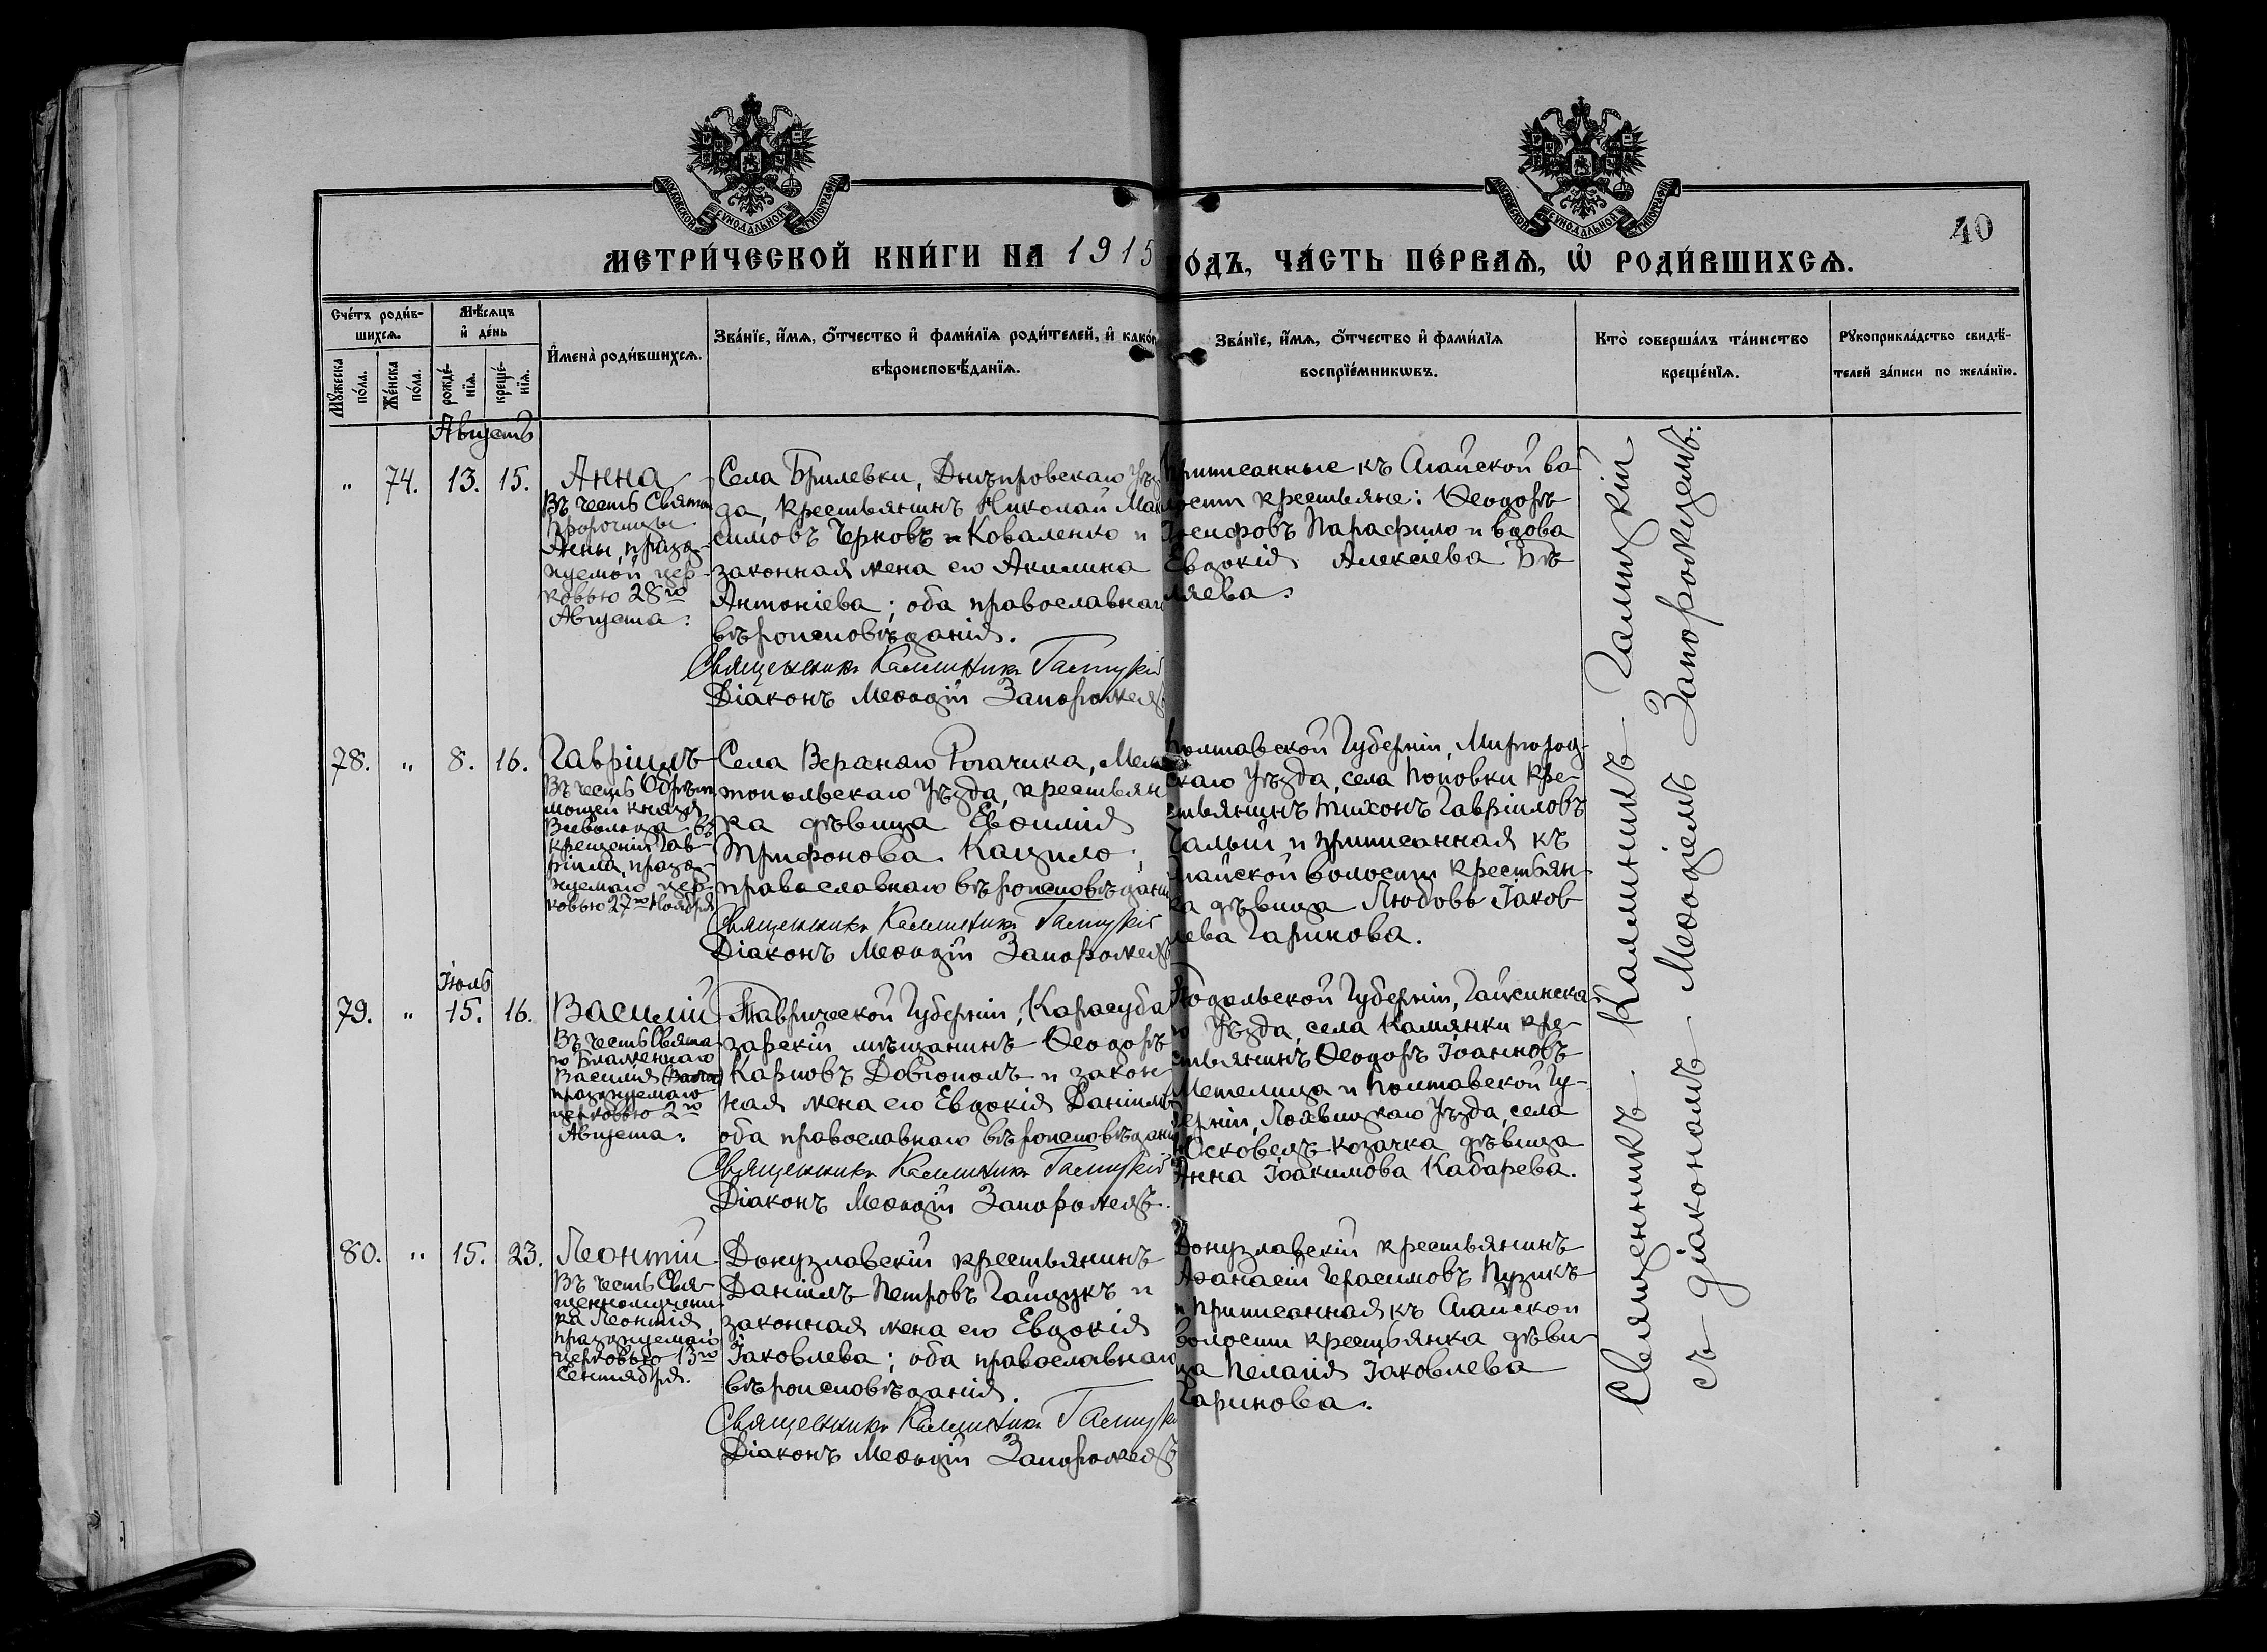 МОСКОВСКОЙ СѴНОДАЛЬНОЙ ТИПОГРАФІИ
МОСКОВСКОЙ СѴНОДАЛЬНОЙ ТИПОГРАФІИ
40
МЕТРИ́ЧЕСКОЙ КНИ́ГИ НА 1915
О́ДЪ, ЧА́СТЬ ПЕ́РВАѦ, Ѡ҆ РОДИ́ВШИХСѦ.
Сче́тъ роди́в-
шихсѧ.
Мѣ́сѧцъ
и҆ де́нь
Мꙋ́жеска
по́ла.
Же́нска
по́ла.
рожде́-
нїѧ.
креще́-
нїѧ.
И҆мена̀ роди́вшихсѧ.
Зва́нїе, и҆́мѧ, ѻ҆́тчество и҆ фами́лїѧ роди́телей, и҆ како́г
вѣроисповѣ́данїѧ.
Зва́нїе, и҆́мѧ, ѻ҆́тчество и҆ фами́лїѧ
воспрїе́мникѡвъ.
Кто̀ соверша́лъ та́инство
креще́нїѧ.
Рꙋкоприкла́дство свидѣ́-
телей за́писи по жела́нїю.
Августъ
" 74. 13. 15. Анна
Въ честь Святой
Пророчицы
Анны, празд-
нуемой цер-
ковью 28го
Августа.
Села Брилевки, Днѣпровскаго Уѣз
да, крестьянинъ Николай Мак
симовъ Черковъ и Коваленко и
законная жена его Акилина
Антоніева; оба православнаго
вѣроисповѣданія.
Священникъ Каллиникъ Галицкій
Діаконъ Меѳодій Запорожецъ
Приписанные къ Агайской во
лости крестьяне: Ѳеодоръ
Іосифовъ Парафило и вдова
Евдокія Алексіева Бѣ
ляева.
78. " 8. 16. Гавріилъ
Въ честь Обрѣт.
мощей князя
Всеволода, въ
крещеніи Гав-
ріила, празд-
нуемаго цер-
ковью 27го Ноября
Села Верхняго Рогачика, Мели
топольскаго Уѣзда, крестьян
ка дѣвица Евѳимія
Трифонова Кацило;
православнаго вѣроисповѣданія
Священникъ Каллиникъ Галицкій
Діаконъ Меѳодій Запорожецъ
Полтавской Губерніи, Миргород-
скаго Уѣзда, села Поповки кре-
стьянинъ Тихонъ Гавріиловъ
Галый и приписанная къ
Агайской волости крестьян-
ка дѣвица Любовь Іаков
лева Гаринова.
Іюль
79. " 15. 16. Василій
Въ честь Свята-
го Блаженнаго
Василія
празднуемаго
церковью 2го
Августа.
Таврической Губерніи, Карасуба
зарскій мѣщанинъ Ѳеодоръ
Карповъ Довгополъ и закон-
ная жена его Евдокія Даніилов
оба православнаго вѣроисповѣданія
Священникъ Каллиникъ Галицкій
Діаконъ Меѳодій Запорожецъ.
Подольской Губерніи, Гайсинска-
го Уѣзда, села Камянки кре-
стьянинъ Ѳеодоръ Іоанновъ
Метелица и Полтавской Гу-
берніи, Лохвицкаго Уѣзда, села
козачка дѣвица
Анна Іоакимова Кабарева.
80. " 15. 23. Леонтій
Въ честь Свя-
щенномучени-
ка Леонтія,
празднуемаго
церковью 13го
Сентября.
Донузлавскій крестьянинъ
Даніилъ Петровъ Гайдукъ и
законная жена его Евдокія
Іаковлева; оба православнаго
вѣроисповѣданія.
Священникъ Каллиникъ Галицкі
Діаконъ Меѳодій Запорожецъ
Донузлавскій крестьянинъ
Аѳанасій Герасимовъ Пузикъ
и приписанная къ Агайской
волости крестьянка дѣви-
ца Пелагія Іаковлева
Гаринова.
Священникъ Каллиникъ Галицкій
съ діакономъ Меѳодіемъ Запорожцемъ.